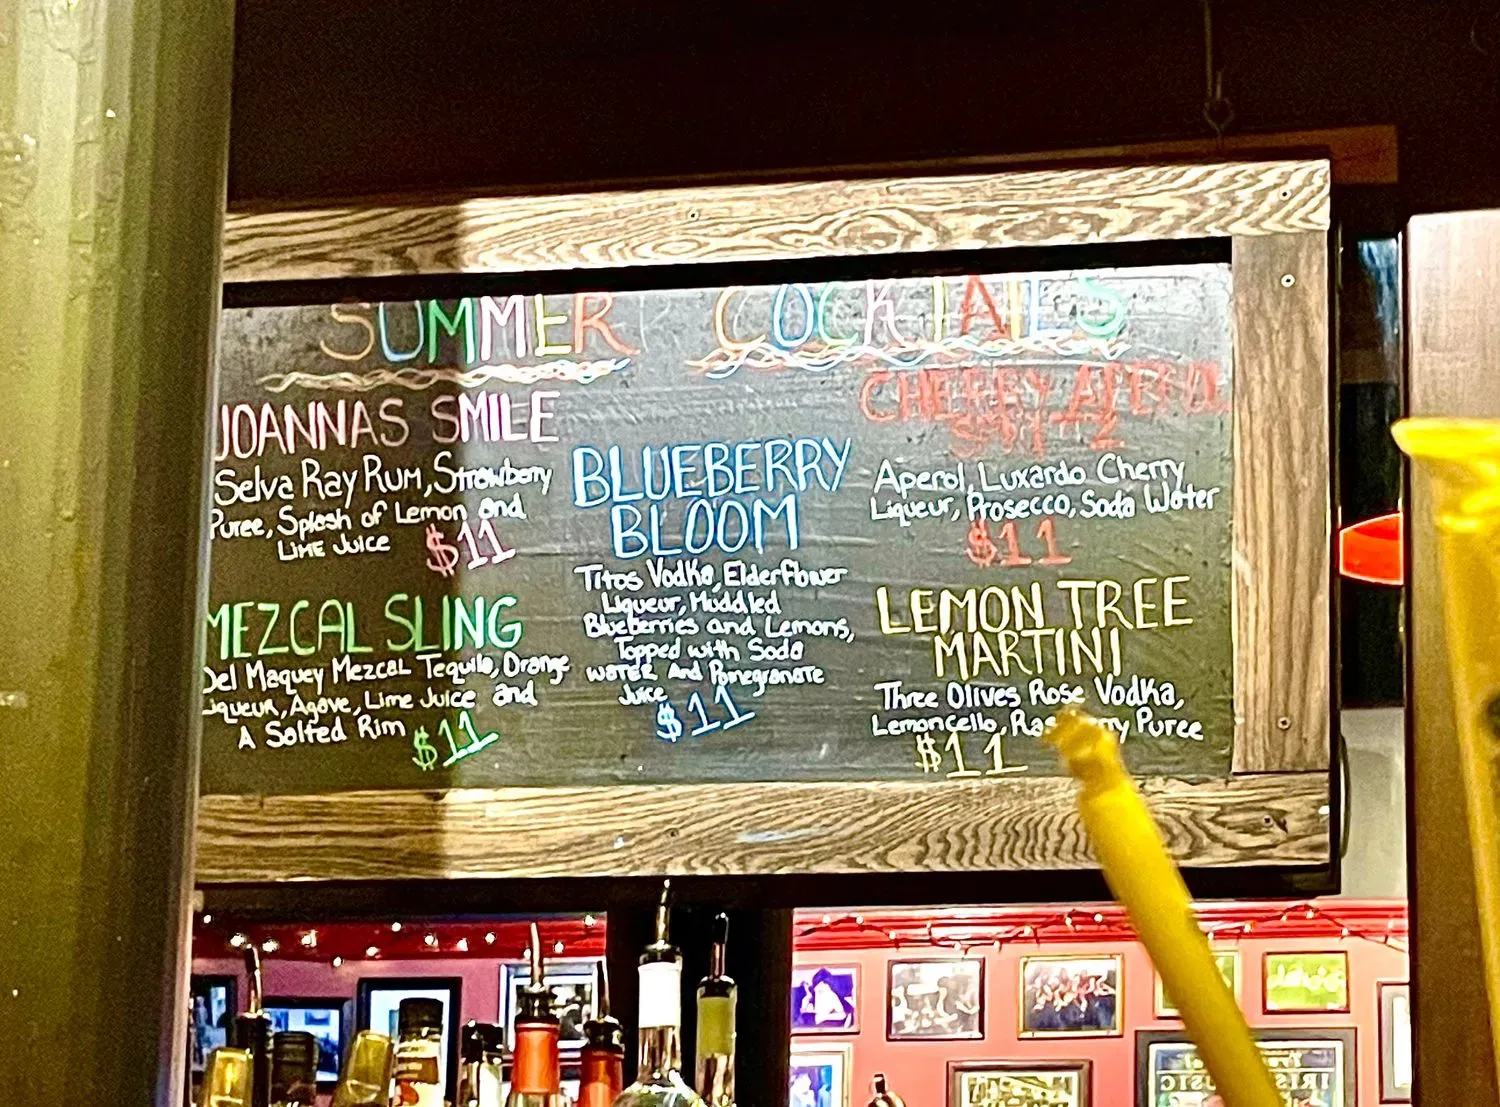 SUMMER COCKTAILS
JOANNAS SMILE
Selva Ray Rum, Strawberry
Puree, Splash of Lemon and
Lime Juice
$11
MEZCAL SLING
Del Maquey Mezcal Tequila, Orange
Liqueur, Agave, Lime Juice and
A Salted Rim
$11
BLUEBERRY
BLOOM
Titos Vodka, Elderflower
Liqueur, Muddled
Blueberries and Lemons,
Topped with Soda
Water and Pomegranate
Juice
$11
CHERRY APEROL
SPITZ
Aperol, Luxardo Cherry
Liqueur, Prosecco, Soda Water
$11
LEMON TREE
MARTINI
Three Olives Rose Vodka,
Lemoncello, Raspberry Puree
$11